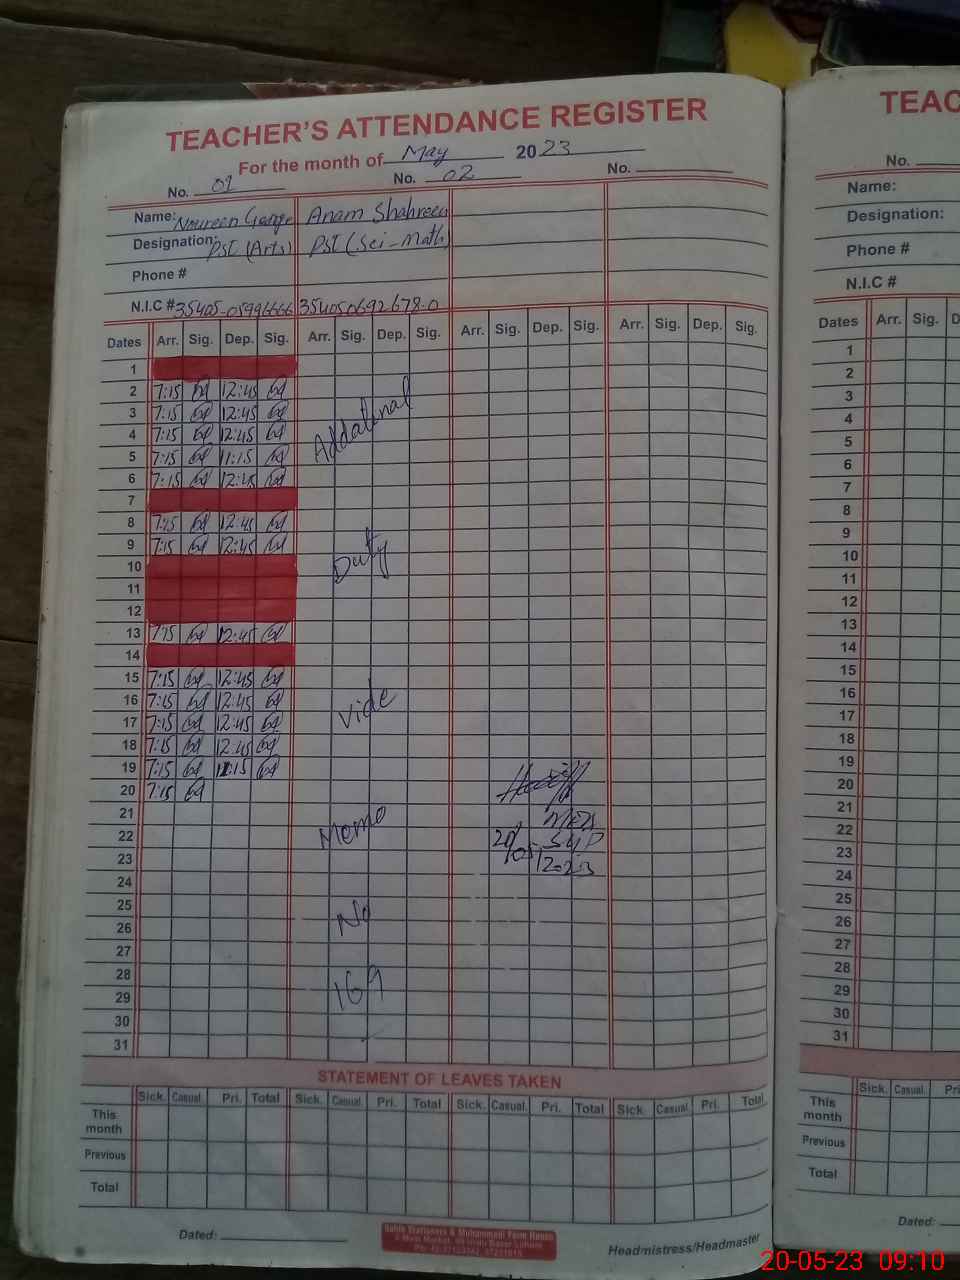 TEACHER'S ATTENDANCE REGISTER
For the month of May 2023
No. 01 No. 02 No.
Name: Noureen Anam Shahreen
Designation: PST (Arts) PST (Sci-Math)
Phone #
N.I.C # 35405-05996666 354050692678-0
Dates Arr. Sig. Dep. Sig. Arr. Sig. Dep. Sig. Arr. Sig. Dep. Sig. Arr. Sig. Dep. Sig.
1
2 7:15 12:45
3 7:15 12:45
4 7:15 12:45
5 7:15 11:15
6 7:15 12:45
7
8 7:15 12:45
9 7:15 12:45
10
11
12
13 7:15 12:45
14
15 7:15 12:45
16 7:15 12:45
17 7:15 12:45
18 7:15 12:45
19 7:15 11:15
20 7:15
21
22
23
24
25
26
27
28
29
30
31
Addational
Duty
vide
Memo
No
169
20/05/2023
STATEMENT OF LEAVES TAKEN
Sick. Casual. Pri. Total Sick. Casual. Pri. Total Sick. Casual. Pri. Total Sick. Casual. Pri. Total
This month
Previous
Total
Dated:
Headmistress/Headmaster
TEAC
No.
Name:
Designation:
Phone #
N.I.C #
Dates Arr. Sig. D
1
2
3
4
5
6
7
8
9
10
11
12
13
14
15
16
17
18
19
20
21
22
23
24
25
26
27
28
29
30
31
Sick. Casual. Pri
This month
Previous
Total
Dated:
20-05-23 09:10